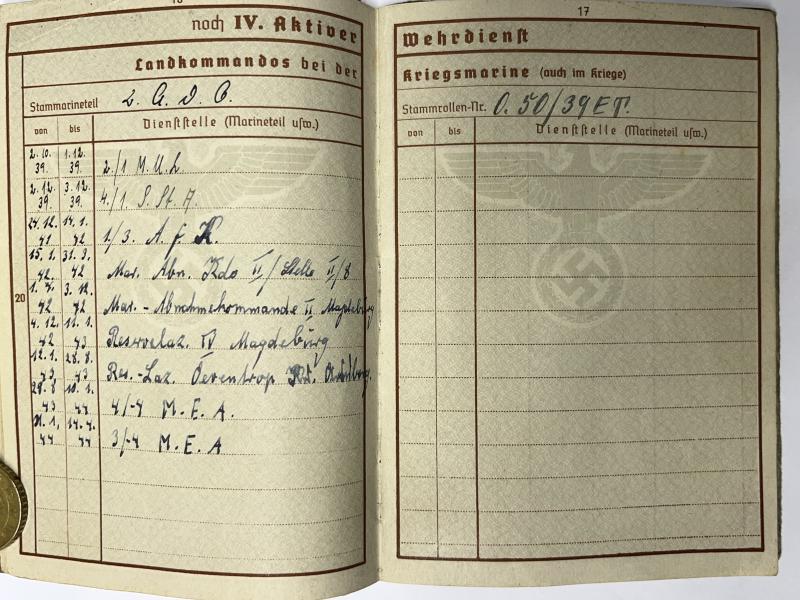 noch IV. Aktiver
Landkommandos bei der
Stammarineteil
von bis Dienststelle (Marineteil usw.)
2.10. 1.12.
39. 39. 2./1 M.U.L.
2.12. 3.12.
39. 39. 4./1. S.St.A.
24.12. 14.1.
41 42 1./3. A.f.K.
15.1. 31.3.
42. 42 Mar. Abn. Kdo II/Stelle II/8
1.4. 3.12.
42 42 Mar.-Abnahmekommando II Magdeburg
4.12. 11.1.
42 43 Reservelaz. IV Magdeburg
12.1. 28.8.
43 43 Res.-Laz. Oeventrop
29.8 10.1.
43 44 4./-4 M.E.A.
11.1. 14.4.
44 44 3/-4 M.E.A
20
17
Wehrdienst
Kriegsmarine (auch im Kriege)
Stammrollen-Nr. O.50/39ET.
von bis Dienststelle (Marineteil usw.)